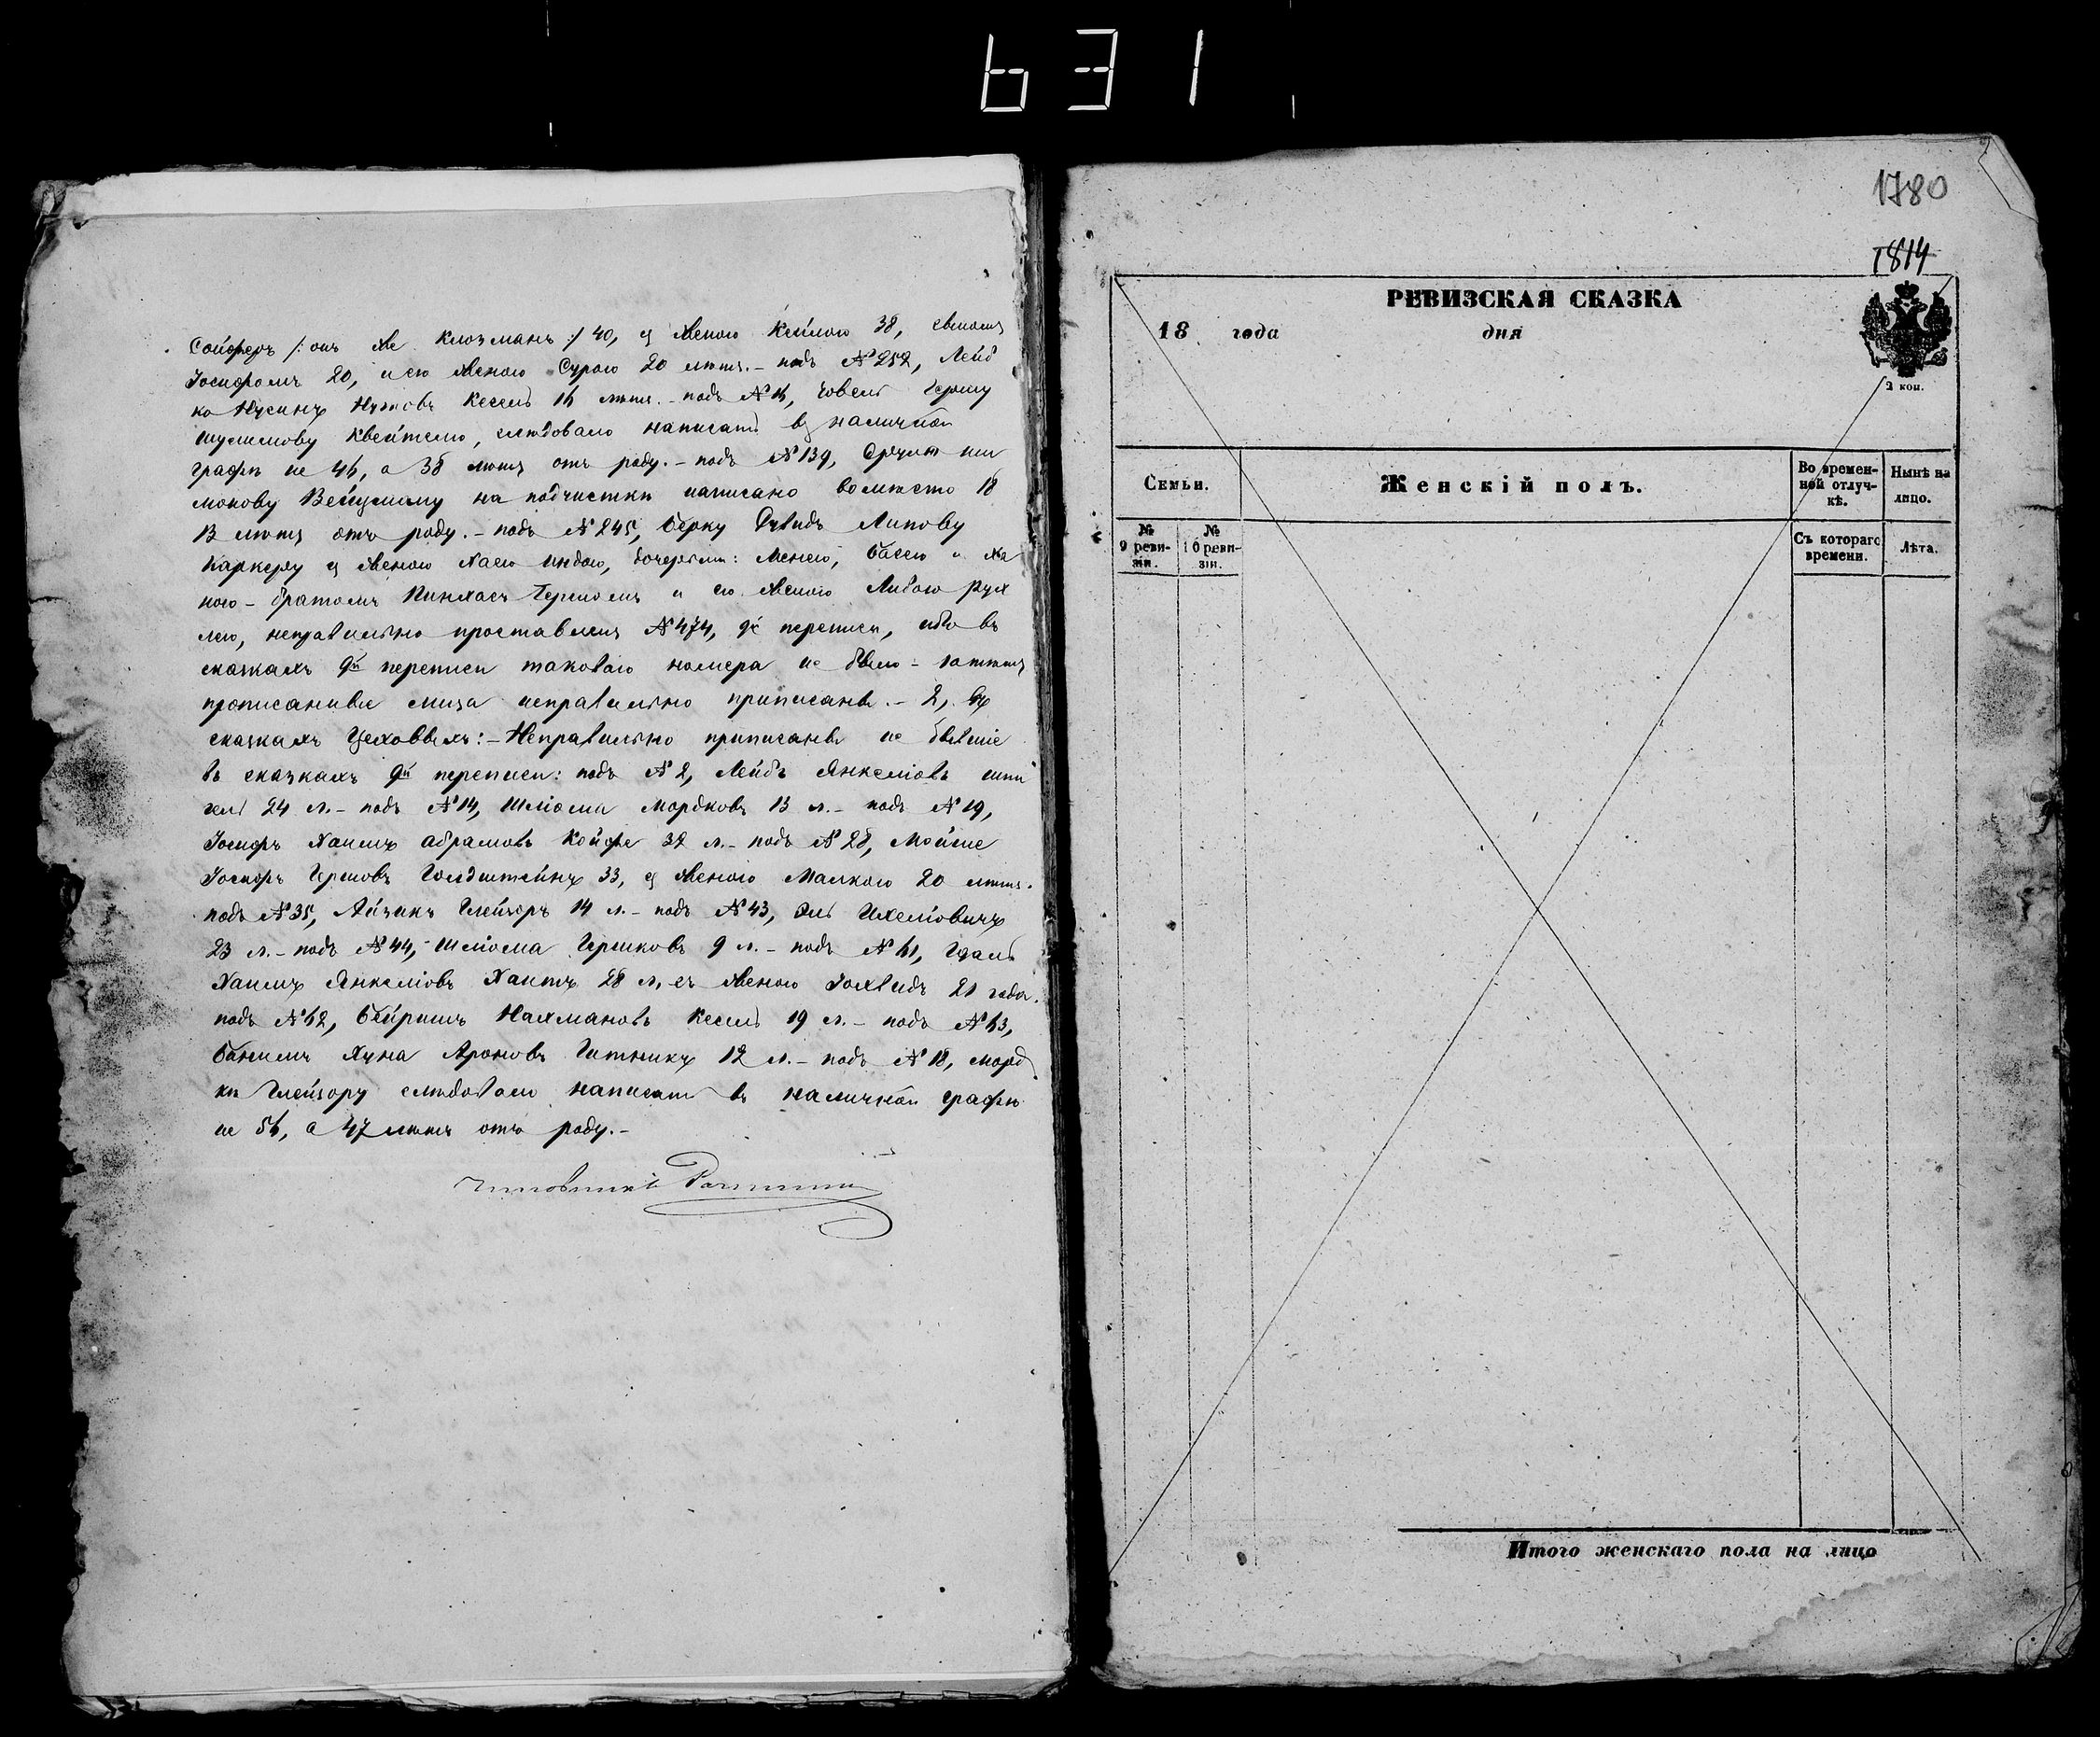 631
Сойферъ /: онъ же Клозманъ :/ 40, съ женою Кейлою 38, сыномъ
Іосифомъ 20, и его женою Сурою 20 лѣтъ. – подъ № 252, Лейб
ко Нусинъ Нутовъ Кесель 16 лѣтъ. – подъ № 6, Іовелю Гершу
Шулимову Квейтелю, слѣдовало написать въ наличной
графѣ не 46, а 38 лѣтъ отъ роду. – подъ № 139,
на подчисткѣ написано вомѣсто 18
13 лѣтъ отъ роду. – подъ № 245, Берку Давидъ Липову
Каркеру съ женою Хаею Индою, дочерьми: Менею, Басею и Ха
ною – братомъ Пинхасъ Гершомъ и его женою Либою Рух
лею, неправильно проставленъ № 474, 9й переписи, ибо въ
сказкахъ 9й переписи таковаго номера не было –
прописанные лица неправильно приписаны. – 2, Въ
сказкахъ Цеховыхъ: – Неправильно приписаны не бывшіе
въ сказкахъ 9й переписи: подъ № 2, Лейбъ Янкеліовъ Шпи
гель 24 л. – подъ № 14, Шліома Мордковъ 13 л. – подъ № 19,
Іосифъ Хаимъ Абрамовъ Койфе 32 л. – подъ № 28, Мойше
Іосифъ Гершовъ Голдштейнъ 33, съ женою Малкою 20 лѣтъ.
подъ № 35, Айзикъ Глейзоръ 14 л. – подъ № 43, Эль Ихеліовичъ
23 л. – подъ № 44, – Шліома Гершковъ 9 л. – подъ № 61,
Хаимъ Янкеліовъ Хаитъ 28 л. съ женою Іохведъ 21 года.
подъ № 62, Бейришъ Нахмановъ Кесель 19 л. – подъ № 63,
Хуна Ароновъ Гитникъ 12 л. – подъ № 18, Морд
кѣ Глейзору слѣдовало написать въ наличной графѣ
не 56, а 47 лѣтъ отъ роду. –
Чиновникъ
1780
1814
РЕВИЗСКАЯ СКАЗКА
18 года дня
2 коп.
Семьи.
Женскій полъ.
Во времен-
ной отлуч-
кѣ.
Нынѣ на
лицо.
№
9 реви-
зіи.
№
10 реви-
зіи.
Съ котораго
времени.
Лѣта.
Итого женскаго пола на лицо